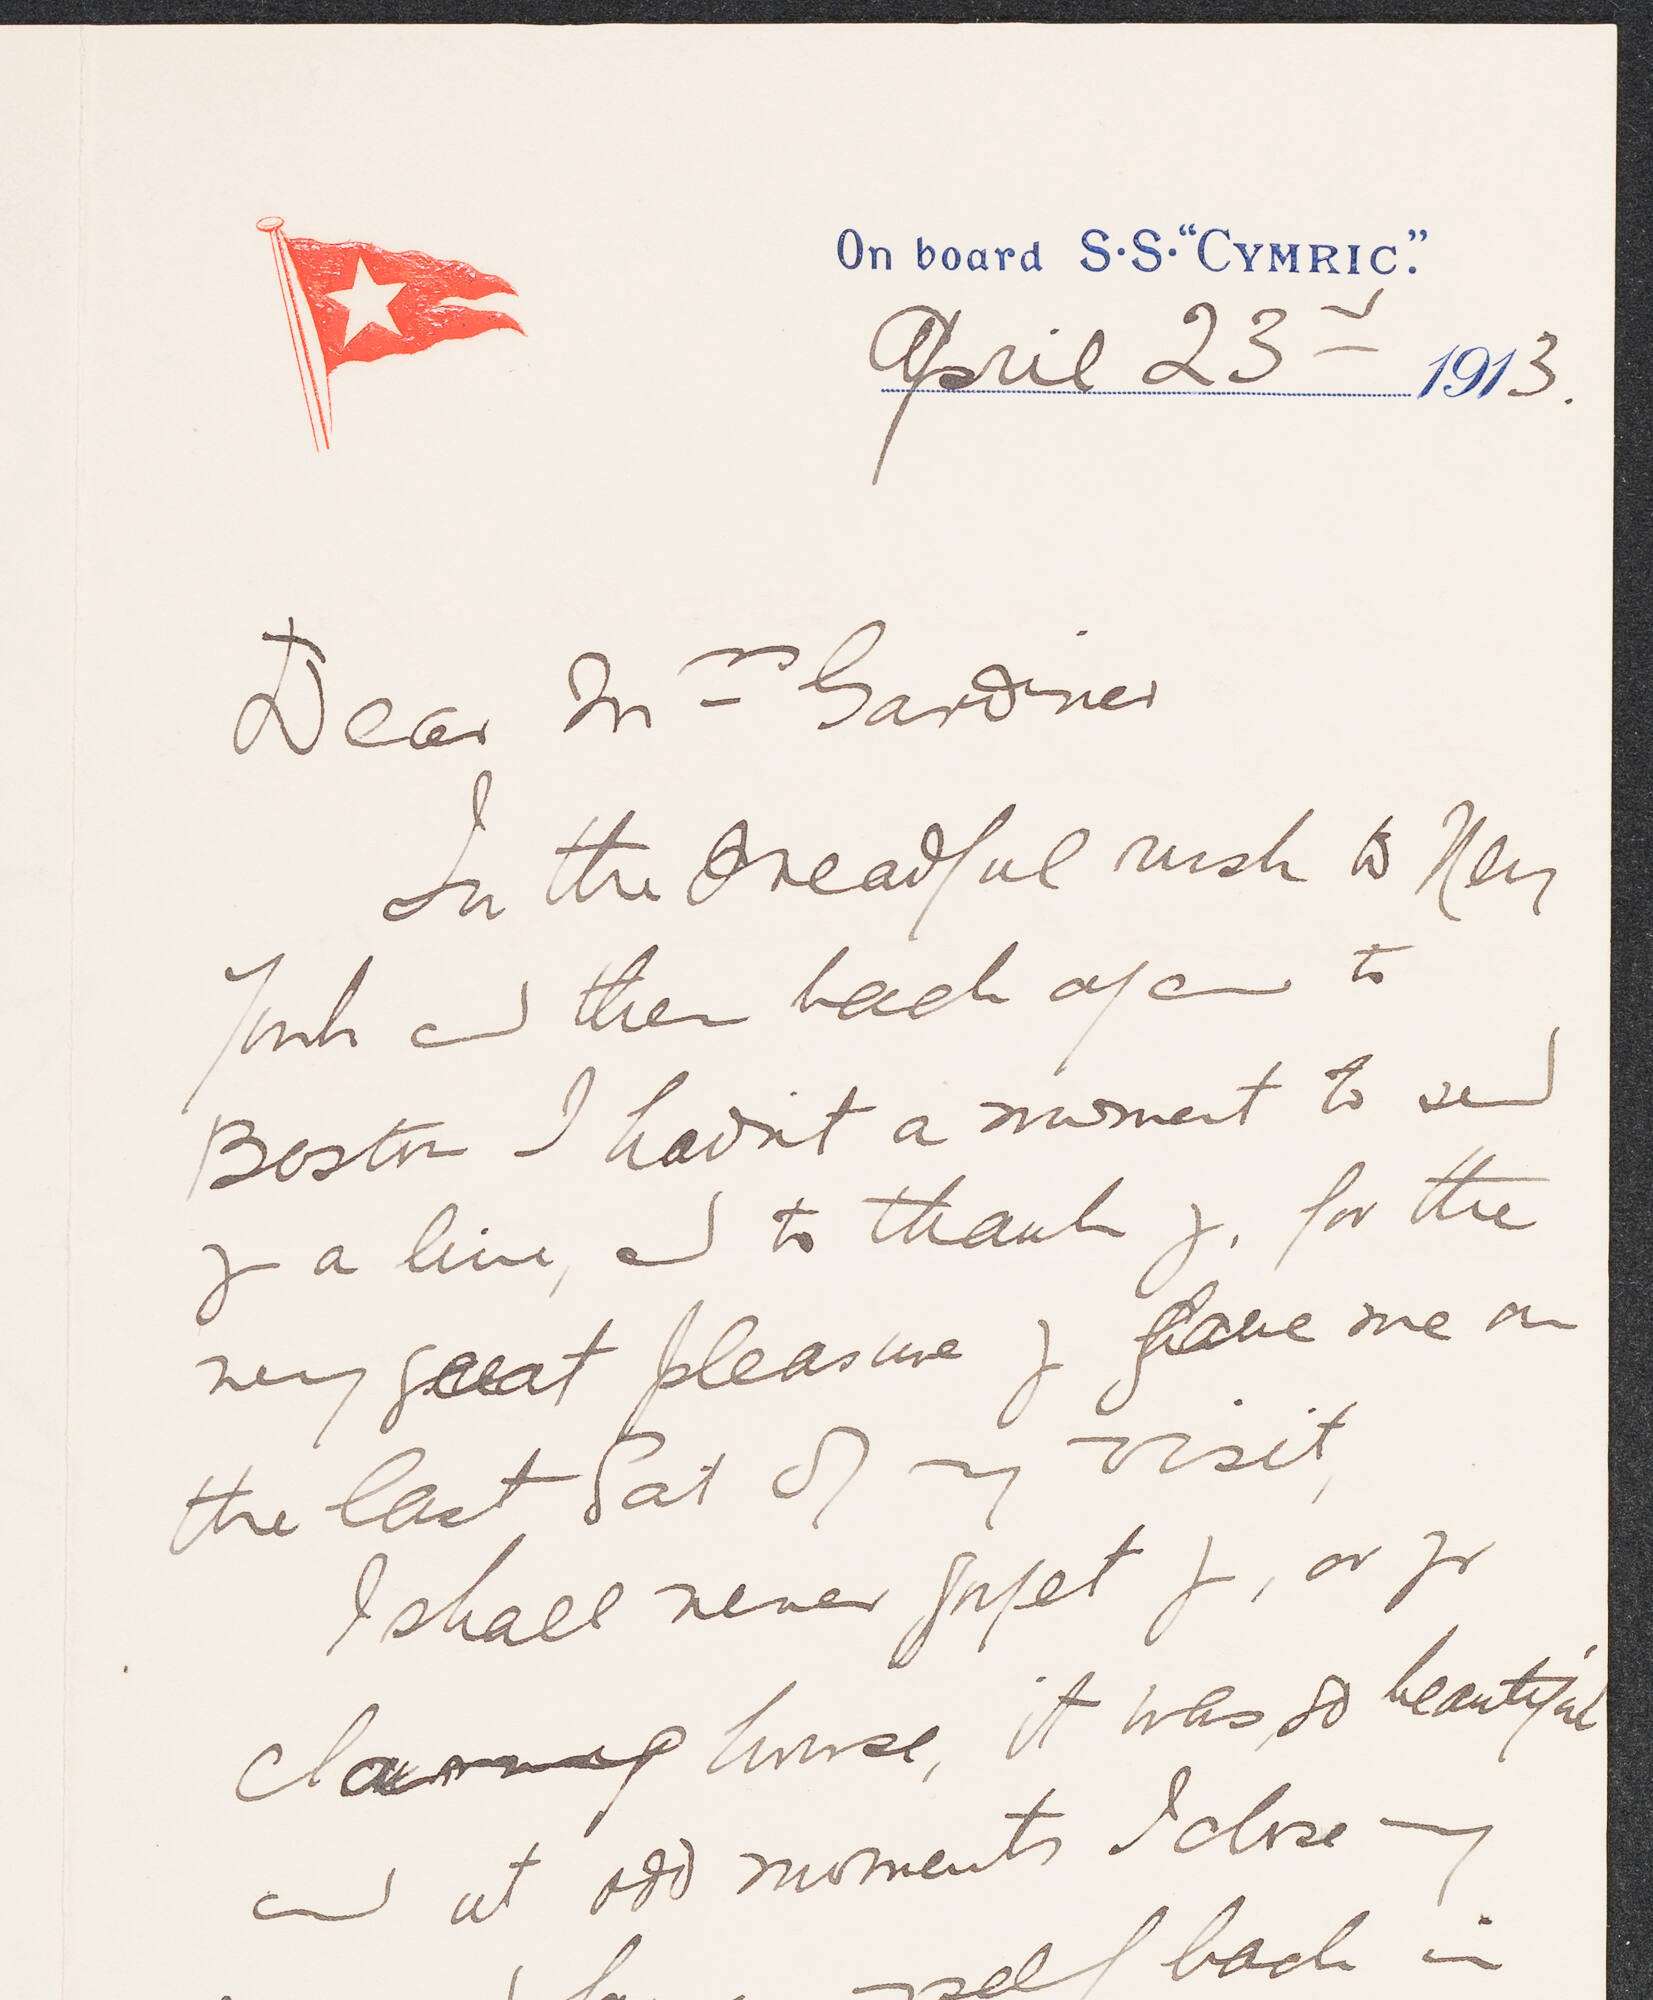 On board S.S. "CYMRIC."
April 23rd 1913.
Dear Mrs Gardiner
In the dreadful rush to New
York and then back again to
Boston I hadn't a moment to send
y a line, and to thank y. for the
very great pleasure y gave me on
the last Sat of my visit,
I shall never forget y, or yr
charming house, it was so beautiful
and at odd moments I close my
myself back in